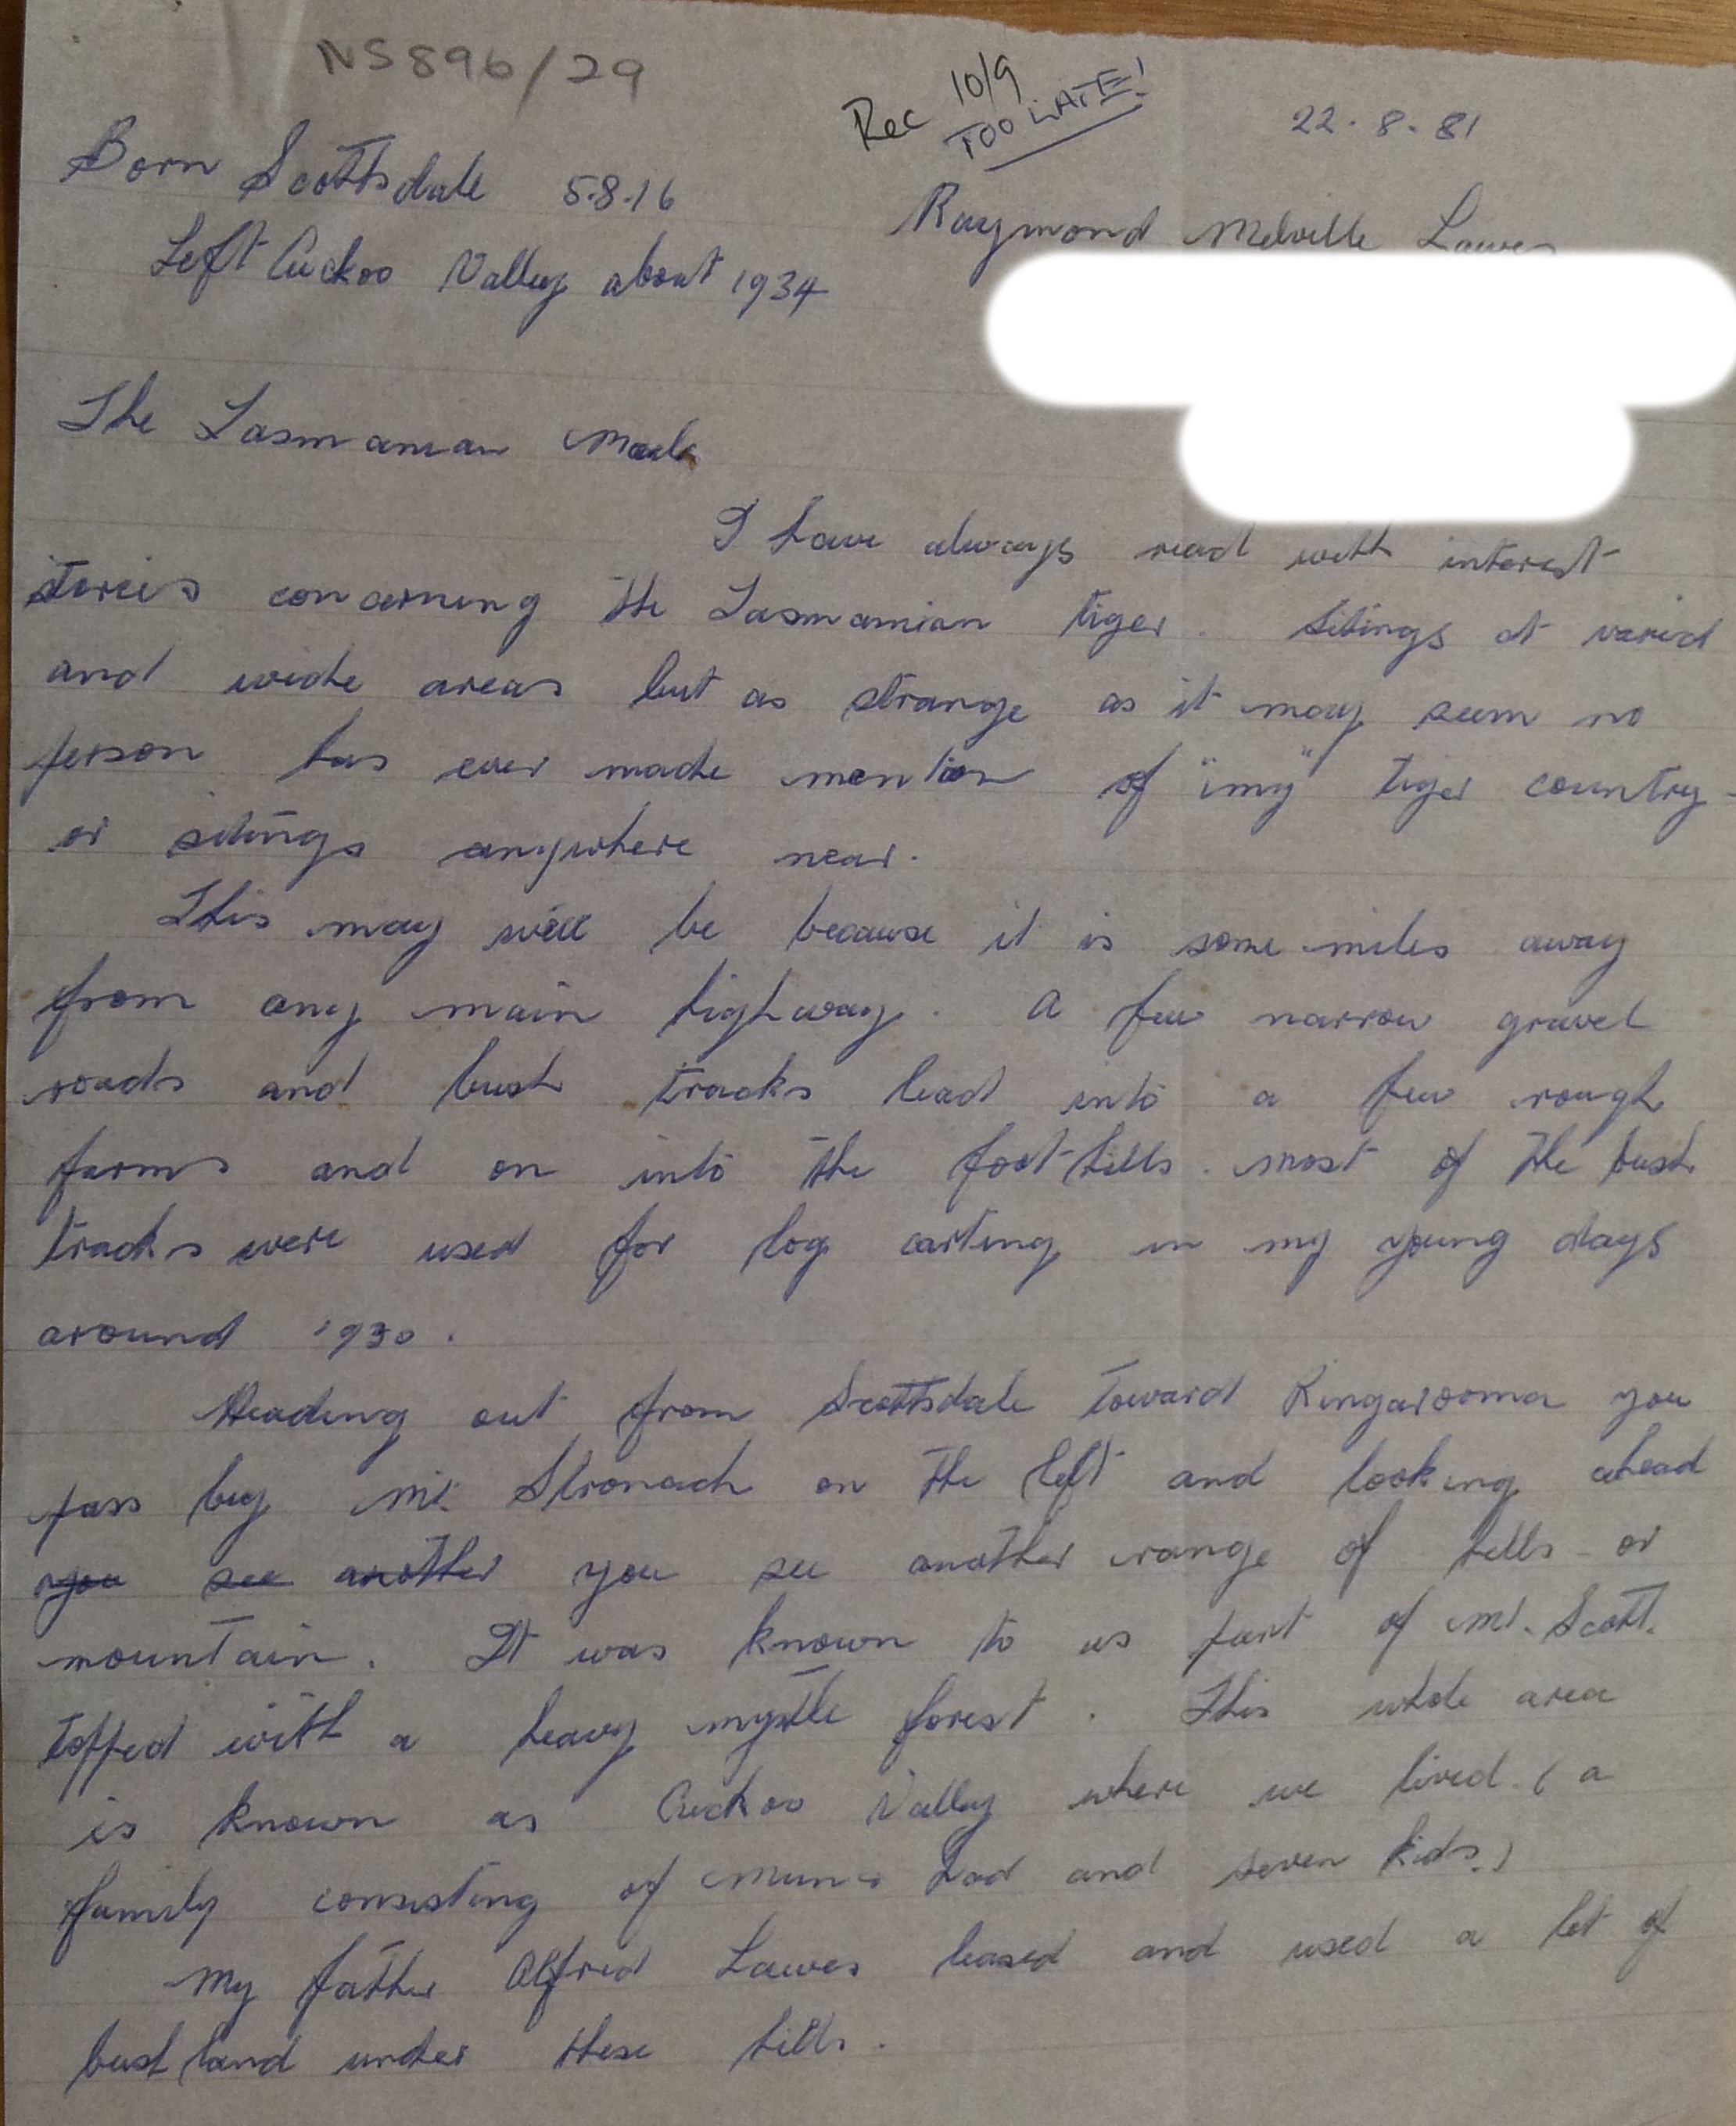 NS896/29
Rec 10/9
TOO LATE!
22.8.81
Born Scottsdale 5.8.16
Raymond Melville Lawes
Left Cuckoo Valley about 1934
The Tasmanian Mail
I have always read with interest
stories concerning the Tasmanian tiger. Sitings at varied
and wide areas but as strange as it may seem no
person has ever made mention of "my" tiger country -
or sitings anywhere near.
This may well be because it is some miles away
from any main highway. A few narrow gravel
roads and bush tracks lead into a few rough
farms and on into the foot-hills. Most of the bush
tracks were used for log carting in my young days
around 1930.
Heading out from Scottsdale toward Ringarooma you
pass by Mt. Stronach on the left and looking ahead
you see another you see another range of hills - or
mountain. It was known to us part of Mt. Scott.
topped with a heavy myrtle forest. This whole area
is known as Cuckoo Valley where we lived. (a
family consisting of Mum & Dad and seven kids.)
My father Alfred Lawes leased and used a lot of
bush land under these hills.